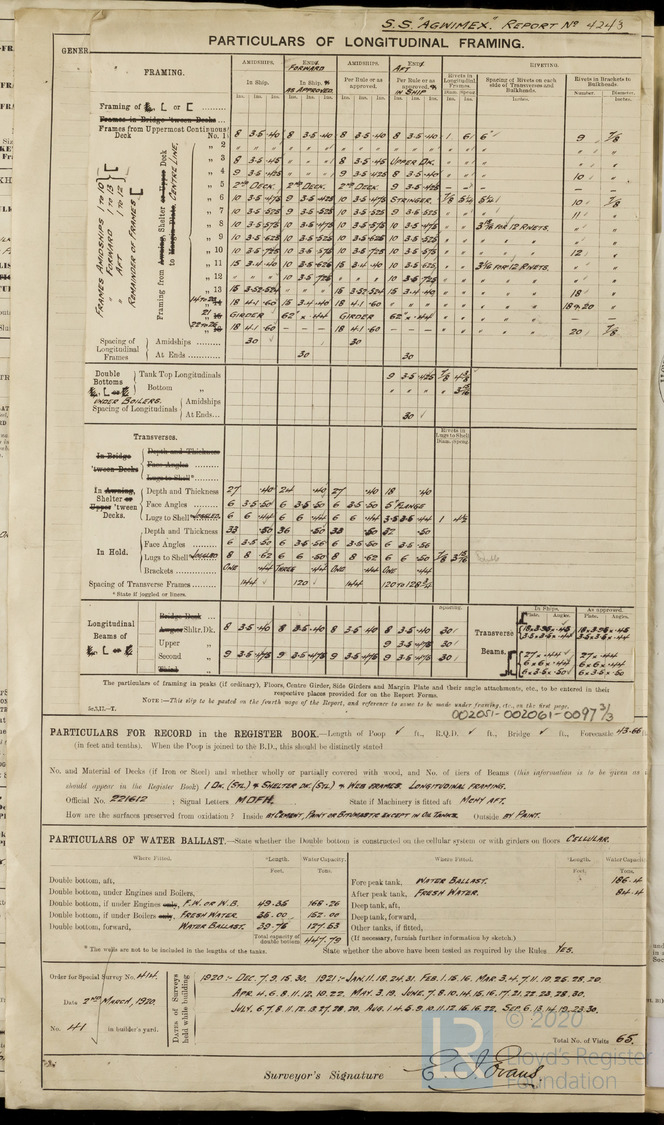 S.S. "AGWIMEX." REPORT No 4243
PARTICULARS OF LONGITUDINAL FRAMING.
FRAMING.
AMIDSHIPS.
ENDS FORWARD
AMIDSHIPS.
ENDS AFT
RIVETING.
In Ship.
In Ship. AS APPROVED.
Per Rule or as approved.
Per Rule or as approved. IN SHIP
Rivets in Longitudinal Frames.
Spacing of Rivets on each side of Transverses and Bulkheads.
Rivets in Brackets to Bulkheads.
Framing of L, L or [
Frames in Bridge 'tween Decks
Frames from Uppermost Continuous Deck No. 1 8 3·5·40 8 3·5·40 8 3·5·40 8 3·5·40 1 6 6" 9 7/8
" 2
" 3 8 3·5·45 8 3·5·45 UPPER DK.
" 4 9 3·5·425 9 3·5·425 8 3·5·40 10
" 5 2ND DECK. 2ND DECK. 2ND DECK. 9 3·5·425
" 6 10 3·5·475 9 3·5·425 10 3·5·475 STRINGER. 7/8 5 1/4 5 1/4 10 7/8
" 7 10 3·5·525 9 3·5·525 10 3·5·525 9 3·5·525 11
" 8 10 3·5·575 10 3·5·475 10 3·5·575 10 3·5·475 FOR 12 RIVETS.
" 9 10 3·5·625 10 3·5·525 10 3·5·625 10 3·5·525
" 10 10 3·5·725 10 3·5·575 10 3·5·725 10 3·5·575 12
" 11 15 3·4·40 10 3·5·625 15 3·4·40 10 3·5·625 FOR 12 RIVETS.
" 12 10 3·5·725 10 3·5·725
" 13 15 3·52·524 15 3·52·524 15 3·4·40 18
18 4·1·60 15 3·4·40 18 4·1·60 18 & 20
21 GIRDER 62" x ·44 GIRDER 62" x ·44
18 4·1·60 – – – 18 4·1·60 – – – 20 7/8
FRAMES AMIDSHIPS 1 TO 10
" FORWARD 1 TO 13
" AFT 1 TO 12
REMAINDER OF FRAMES [
Framing from Awning, Shelter or Upper Deck to Margin Plate. CENTRE LINE.
Spacing of Longitudinal Frames
Amidships 30 30
At Ends 30 30
Double Bottoms L, L or [ UNDER BOILERS.
Tank Top Longitudinals 9 3·5·425 7/8
Bottom "
Spacing of Longitudinals
Amidships
At Ends 30
Transverses.
Rivets in Lugs to Shell
In Bridge 'tween Decks
Depth and Thickness
Face Angles
Lugs to Shell*
In Awning, Shelter or Upper 'tween Decks.
Depth and Thickness 27 ·40 24 ·40 27 ·40 18 ·40
Face Angles 6 3·5·50 6 3·5·50 6 3·5·50 5" FLANGE
Lugs to Shell* JOGGLED 6 6 ·44 6 6 ·44 6 6 ·44 3·5 3·5 ·44 1 4 1/2
In Hold.
Depth and Thickness 33 ·50 36 ·50 33 ·50 ·50
Face Angles 6 3·5·50 6 3·5·56 6 3·5·50 6 3·5·56
Lugs to Shell* JOGGLED 8 8 ·62 6 6 ·50 8 8 ·62 6 6 ·50 7/8
Brackets ONE ·44 THREE ·44 ONE ·44 ONE ·44
Spacing of Transverse Frames 144 120 144 120 TO 128 3/4
* State if joggled or liners.
Longitudinal Beams of L, L or [
Bridge Deck
Awning Shltr. Dk. 8 3·5·40 8 3·5·40 8 3·5·40 8 3·5·40 30
Upper " 9 3·5·475 30
Second " 9 3·5·475 9 3·5·475 9 3·5·475 9 3·5·475 30
Third "
Spacing.
Transverse Beams.
In Ships. Plate. Angles.
As approved. Plate. Angles.
27 x ·44 27 x ·44
6 x 6 x ·44 6 x 6 x ·44
6 x 3·5 x ·50 6 x 3·5 x ·50
The particulars of framing in peaks (if ordinary), Floors, Centre Girder, Side Girders and Margin Plate and their angle attachments, etc., to be entered in their
respective places provided for on the Report Forms.
NOTE:—This slip to be pasted on the fourth page of the Report, and reference to same to be made under framing, etc., on the first page.
002051-002061-0097 3/3
PARTICULARS FOR RECORD in the REGISTER BOOK.—Length of Poop ✓ ft., R.Q.D. ✓ ft., Bridge ✓ ft., Forecastle 43·66
(in feet and tenths). When the Poop is joined to the B.D., this should be distinctly stated
No. and Material of Decks (if Iron or Steel) and whether wholly or partially covered with wood, and No. of tiers of Beams (this information is to be given as i
should appear in the Register Book) 1 DK. (STL) & SHELTER DK. (STL) & WEB FRAMES. LONGITUDINAL FRAMING.
Official No. 221612 ; Signal Letters MDFH. State if Machinery is fitted aft MCHY AFT.
How are the surfaces preserved from oxidation? Inside BY CEMENT, PAINT OR BITUMASTIC EXCEPT IN OIL TANKS. Outside BY PAINT.
PARTICULARS OF WATER BALLAST.—State whether the Double bottom is constructed on the cellular system or with girders on floors CELLULAR.
Where Fitted. *Length. Feet. Water Capacity. Tons.
Where Fitted. *Length. Feet. Water Capacity Tons.
Double bottom, aft,
Double bottom, under Engines and Boilers,
Double bottom, if under Engines only, F.W. OR W.B. 49·35 168·26
Double bottom, if under Boilers only, FRESH WATER. 36·00 152·00
Double bottom, forward, WATER BALLAST. 39·75 127·53
Total capacity of double bottom 447·79
Fore peak tank, WATER BALLAST. 186·4
After peak tank, FRESH WATER. 84·4
Deep tank, aft,
Deep tank, forward,
Other tanks, if fitted,
(If necessary, furnish further information by sketch.)
* The wells are not to be included in the lengths of the tanks.
State whether the above have been tested as required by the Rules YES.
Order for Special Survey No. 414
Date 2ND MARCH, 1920.
No. 41 in builder's yard.
DATES of Surveys held while building
1920:- DEC. 7, 9, 15, 30. 1921:- JAN. 11, 18, 24, 31. FEB. 1, 15, 16. MAR. 3, 4, 7, 11, 19, 25, 28, 29.
APR. 4, 6, 8, 11, 12, 19, 22. MAY. 3, 19. JUNE. 7, 8, 10, 14, 15, 16, 17, 21, 22, 23, 28, 30.
JULY. 6, 7, 8, 11, 12, 13, 27, 28, 29. AUG. 1, 4, 5, 9, 10, 11, 12, 15, 16, 22. SEP. 6, 13, 14, 19, 23, 30.
Total No. of Visits 65.
Surveyor's Signature E. J. Evans
© 2020
Lloyd's Register
Foundation